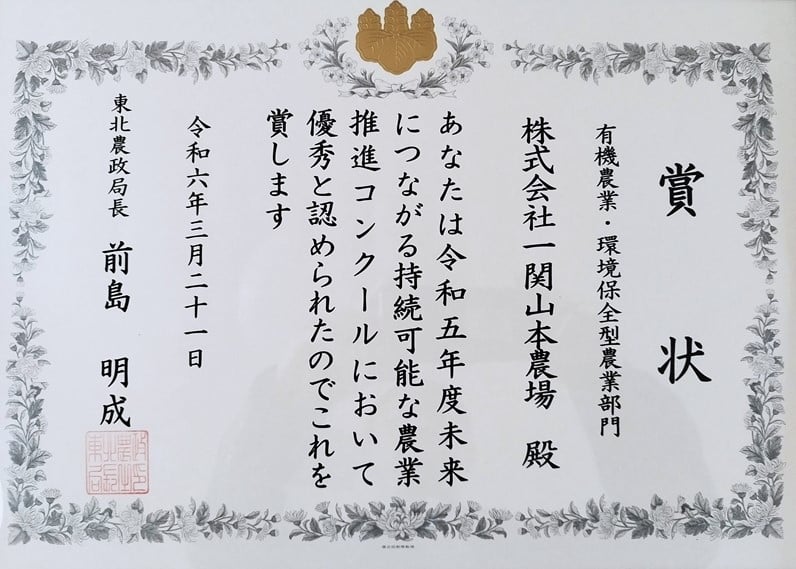 賞状
有機農業・環境保全型農業部門
株式会社一関山本農場 殿
あなたは令和五年度未来
につながる持続可能な農業
推進コンクールにおいて
優秀と認められたのでこれを
賞します
令和六年三月二十一日
東北農政局長 前島 明成